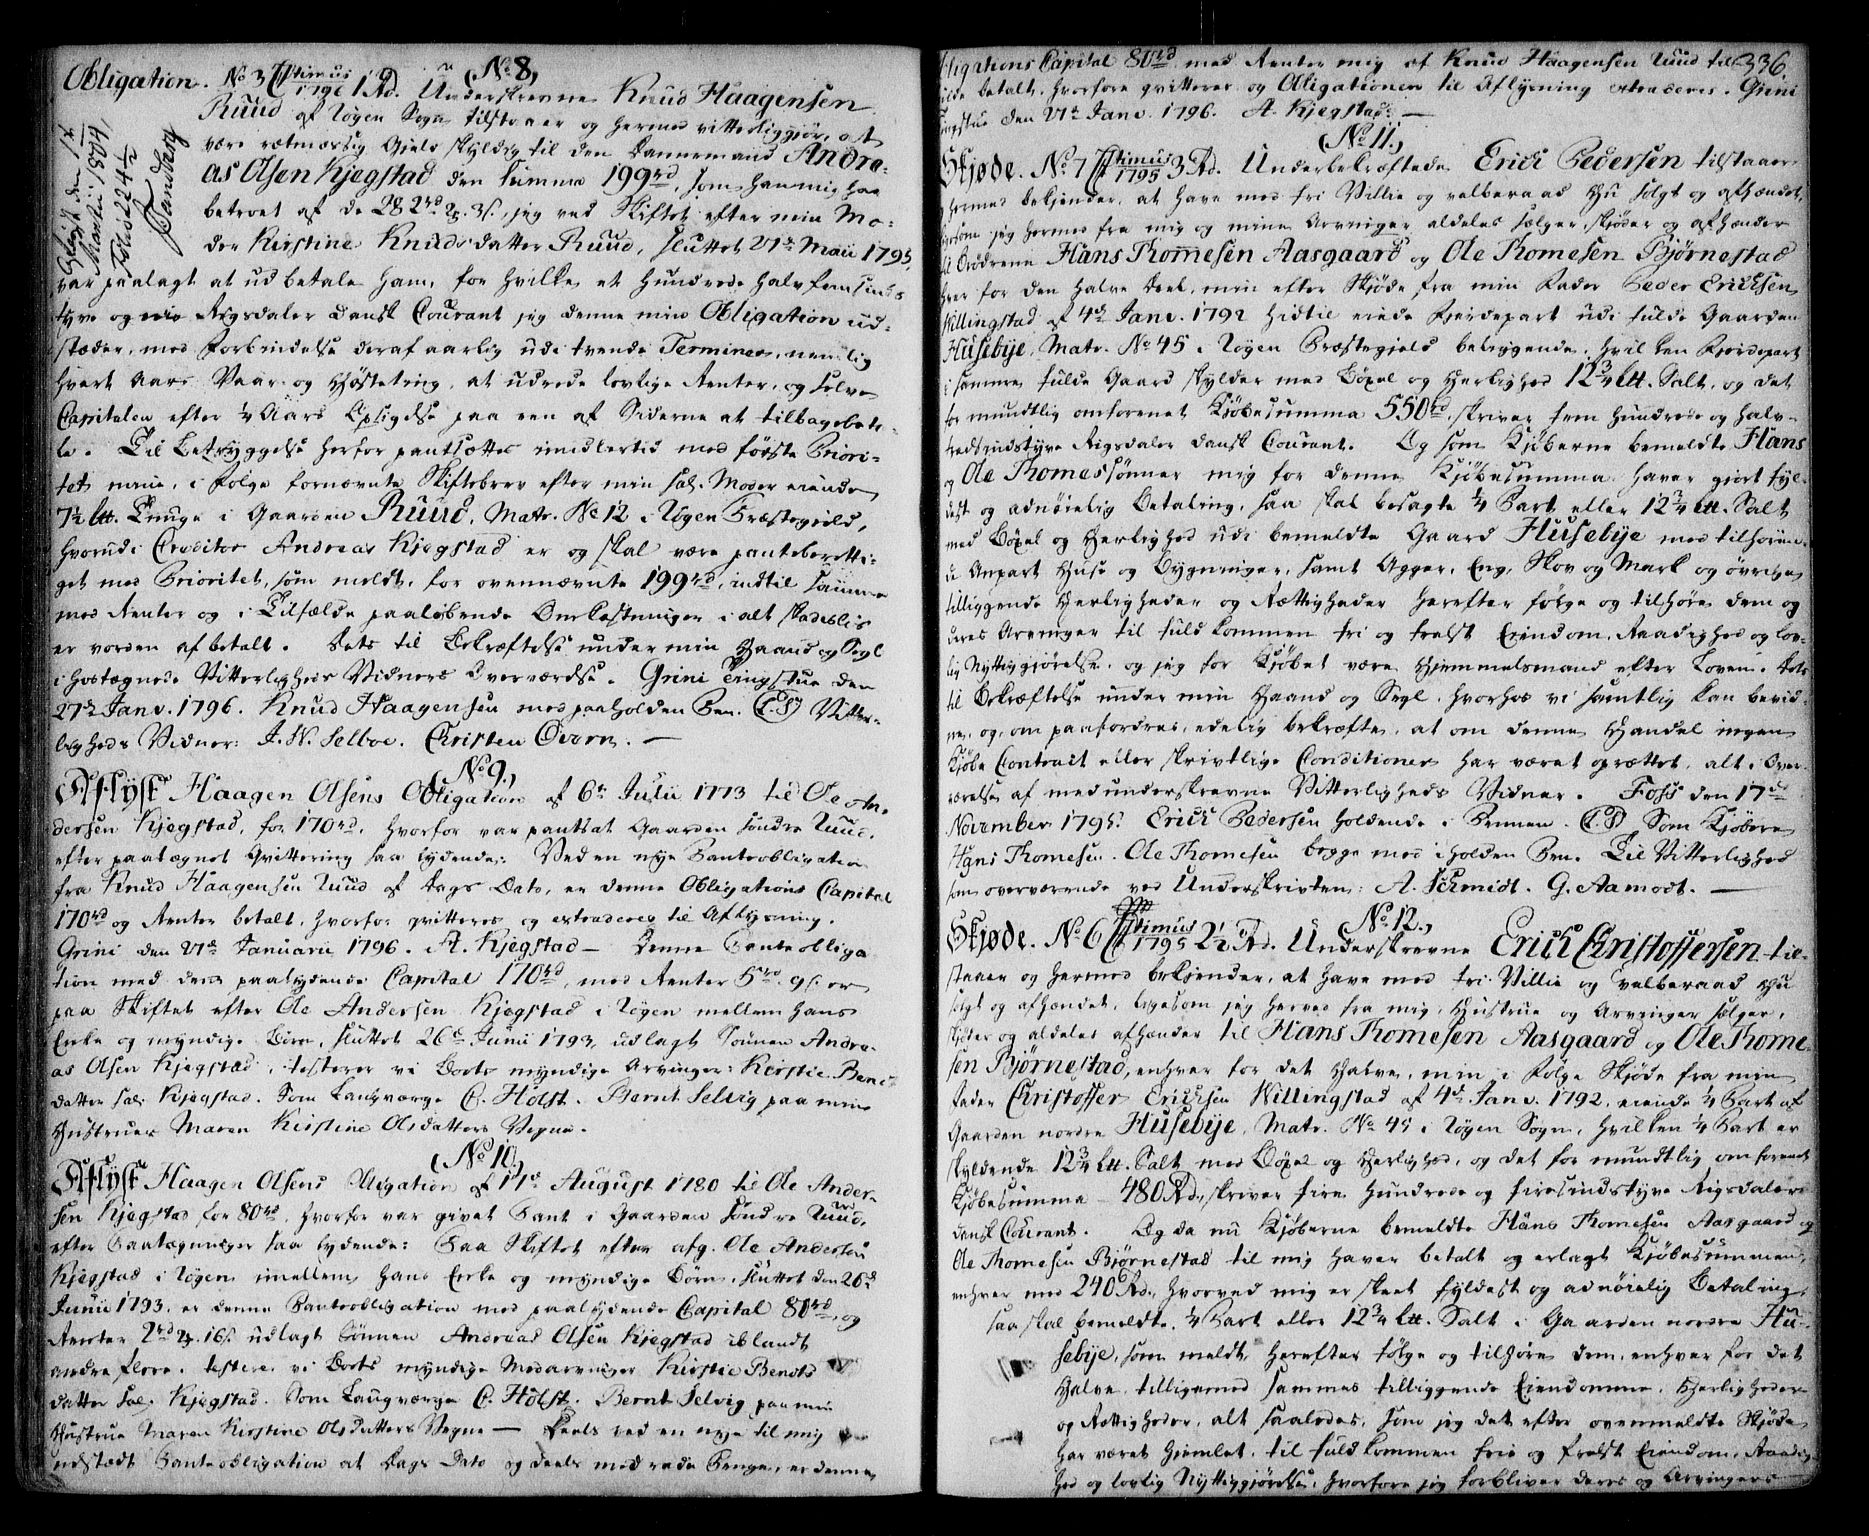 (No 8,)
Obligation. No 3 1796 1 Rd. Underskrevne Knud Haagensen
Ruud af Røgen Sogn tilstaaer og hermed vitterliggjør, at
være retmæssig Gield skyldig til den Dannemand Andre-
as Olsen Kjegstad den Summa 199rd, som han mig har
betroet af de 282rd 2 3s, jeg ved Skiftet efter min Mo-
der Kirstine Knudsdatter Ruud, sluttet 27de Maii 1795,
var paalagt at udbetale ham, for hvilke et Hundrede halvfemsinds
tyve og nie Rigsdaler Dansk Courant jeg denne min Obligation ud-
stæder, med Forbindelse deraf aarlig udi tvende Terminer, nemlig
hvert Aars Vaar- og Høsteting, at udrede lovlige Renter, og selve
Capitalen efter 1/4 Aars Opsigelse paa een af Siderne at tilbagebeta-
le. Til Betryggelse herfor pantsættes imidlertid med første Priori-
tet mine, i Følge fornævnte Skiftebrev efter min Sal. Moder eiende
7 1/2 Ltt. Tunge i Gaarden Ruud, Matr. No 12 i Røgen Præstegield,
hvorudi Creditor Andreas Kjegstad er og skal være panteberetti-
get med Prioritet, som meldt, for ovennævnte 199rd, indtil samme
med Renter og i Tilfælde paaløbende Omkostninger i alt skadesløs
er vorden afbetalt. Dets til Bekræftelse under min Haand og Segl
i hostegnede Vitterligheds Vidners Overværelse. Grini Tingstue den
27de Janv. 1796. Knud Haagensen med paaholden Pen. (L.S.) Vitter-
ligheds Vidner: J. W. Selboe. Christen Overn. —
(No 9,)
Aflyst Haagen Olsens Obligation af 6te Julii 1773 til Ole An-
dersen Kjegstad, for 170rd, hvorfor var pantsat Gaarden søndre Ruud,
efter paategnet Qvittering saa lydende: Ved en nye Panteobligation
fra Knud Haagensen Ruud af Dags Dato, er denne Obligations Capital
170rd og Renter betalt, hvorfor qvitteres og extraderes til Aflysning.
Grini den 27de Januarii 1796. A. Kjegstad — Denne Panteobliga
tion med dens paalydende Capital 170rd, med Renter 5rd 9s. er
paa Skiftet efter Ole Andersen Kjegstad i Røgen mellem hans
Enke og myndige Børn, sluttet 26de Junii 1793, udlagt Sønnen Andre-
as Olsen Kjegstad, testerer vi Boets myndige Arvinger: Kirstie Bens-
datter sal. Kjegstad. Som Laugværge C. Holst. Bernt Selvig paa min
Hustrues Maren Kirstine Olsdatters Vegne.
(No 10,)
Aflyst Haagen Olsens Obligation af 17de August 1780 til Ole Ander-
sen Kjegstad for 80rd, hvorfor var givet Pant i Gaarden søndre Ruud,
efter Paategninger saa lydende: Paa Skiftet efter afg. Ole Andersen
Kjegstad i Røgen imellem hans Enke og myndige Børn, sluttet den 26de
Junii 1793, er denne Panteobligation med paalydende Capital 80rd, og
Renter 2rd 2 16s. udlagt Sønnen Andreas Olsen Kjegstad iblandt
andre flere, testere vi Boets myndige Medarvinger Kirstie Bendts
datter sal. Kjegstad. Som Laugværge C. Holst. Bernt Selvig paa min
Hustrue Maren Kirstine Olsdatters Vegne — Deels ved en nye til mig
udstædt Panteobligation af Dags Dato og deels med rede Penge, er denne
Aflyst den 17
Martii 1804,
Folio 224 1/2
336
Obligations Capital 80rd med Renter mig af Knud Haagensen Ruud til-
fulde betalt, hvorfore qvitterer og Obligationen til Aflysning extraderes. Grini
Tingstue den 27de Janv. 1796. A. Kjegstad. —
(No 11,)
Skjøde. No 7 1795 3 Rd. Underbekræftede Erich Pedersen tilstaaer
hermed bekjender, at have med fri Villie og velberaad Hu solgt og afhændet,
ligesom jeg hermed fra mig og mine Arvinger aldeles sælger, skjøder og afhænder
til Brødrene Hans Thomesen Aasgaard og Ole Thomesen Bjørnestad
hver for den halve Deel, min efter Skjøde fra min Fader Peder Erichsen
Willingstad af 4de Janv. 1792 hidtil eiede Fjerdepart udi fulde Gaarden
Husebije, Matr. No 45 i Røgen Præstegjeld beliggende, hvilken Fjerdepart
i samme fulde Gaard skylder med Bøxel og Herlighed 12 3/4 Ltt. Salt, og det
for mundtlig omforenet Kjøbesumma 550rd, skriver fem Hundrede og halv-
tredsindstyve Rigsdaler dansk Courant. Og som Kjøberne bemeldte Hans
og Ole Thomessønner mig for denne Kjøbesumma haver gjort fyl-
dest og adnøielig Betaling, saa skal besagte 1/4 Part eller 12 3/4 Ltt. Salt
med Bøxel og Herlighed udi bemeldte Gaard Husebije med tilhøren-
de Anpart Huse og Bygninger, samt Agger, Eng, Skov og Mark og øvrige
tilliggende Herligheder og Rættigheder herefter følge og tilhøre dem og
deres Arvinger til fuldkommen fri og frelst Eiendom, Raadighed og lov-
lig Nyttiggjørelse, og jeg for Kjøbet være Hjemmelsmand efter Loven. Dets
til Bekræftelse under min Haand og Segl, hvorhos vi samtlig kan bevid-
ne, og, om paafordres, edelig bekræfte, at om denne Handel ingen
Kjøbe Contract eller skrivtlige Conditioner har været oprættet, alt i Over-
værelse af medunderskrevne Vitterligheds Vidner. Foss den 17de
November 1795. Erich Pedersen holdende i Pennen. (L.S.) Som Kjøbere
Hans Thomesen. Ole Thomesen begge med iholden Pen. Til Vitterlighed
som overværende ved Underskrivten: A. Schmidt. G. Aamodt. —
(No 12,)
Skjøde. No 6 1795 2 1/2 Rd. Underskrevne Erich Christoffersen til-
staaer og hermed bekjender, at have med fri Villie og velberaad Hu
solgt og afhændet, ligesom jeg herved fra mig, Hustrue og Arvinger sælger,
skjøder og aldeles afhænder til Hans Thomesen Aasgaard og Ole Thome-
sen Bjørnestad, enhver for det Halve, min i Følge Skjøde fra min
Fader Christoffer Erichsen Willingstad af 4de Janv. 1792, eiende 1/4 Part af
Gaarden nordre Husebije, Matr. No 45 i Røgen Sogn, hvilken 1/4 Part er
skyldende 12 3/4 Ltt. Salt med Bøxel og Herlighed, og det for mundtlig omforenet
Kjøbesumma 480 Rd., skriver fire Hundrede og firesindstyve Rigsdaler
dansk Courant. Og da nu Kjøberne bemeldte Hans Thomesen Aasgaard og
Ole Thomesen Bjørnestad til mig haver betalt og erlagt Kjøbesummen,
enhver med 240 Rd., hvorved mig er skeet fyldest og adnøielig Betaling,
saa skal bemeldte 1/4 Part eller 12 3/4 Ltt. Salt i Gaarden nordre Hu-
sebije, som meldt, herefter følge og tilhøre dem, enhver for det
Halve, tilligemed sammes tilliggende Eiendomme, Herligheder
og Rættigheder, alt saaledes, som jeg det efter ovenmeldte Skjøde
har været hjemlet, til fuldkommen frie og frelst Eiendom, Raadig-
hed og lovlig Nyttiggjørelse, hvorfore jeg forbliver deres og Arvingers